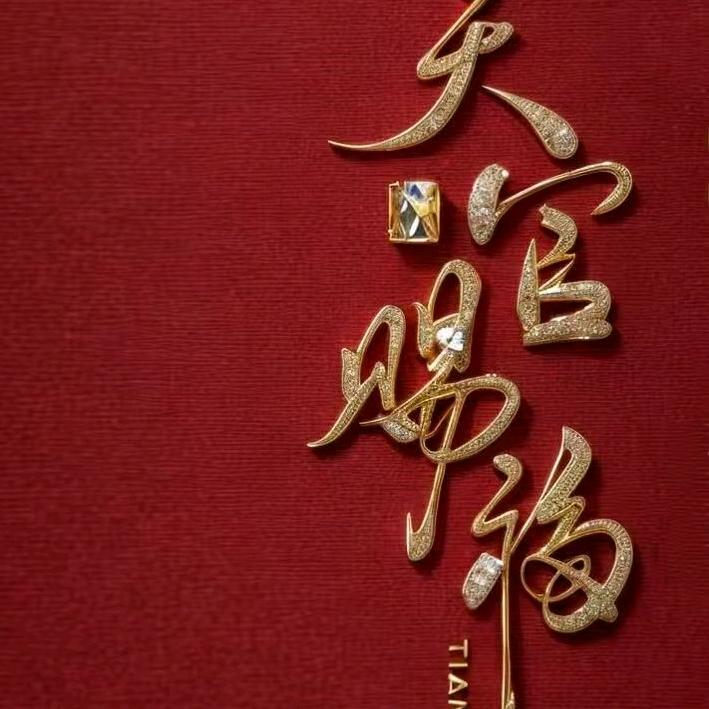 天官賜福
TIAN